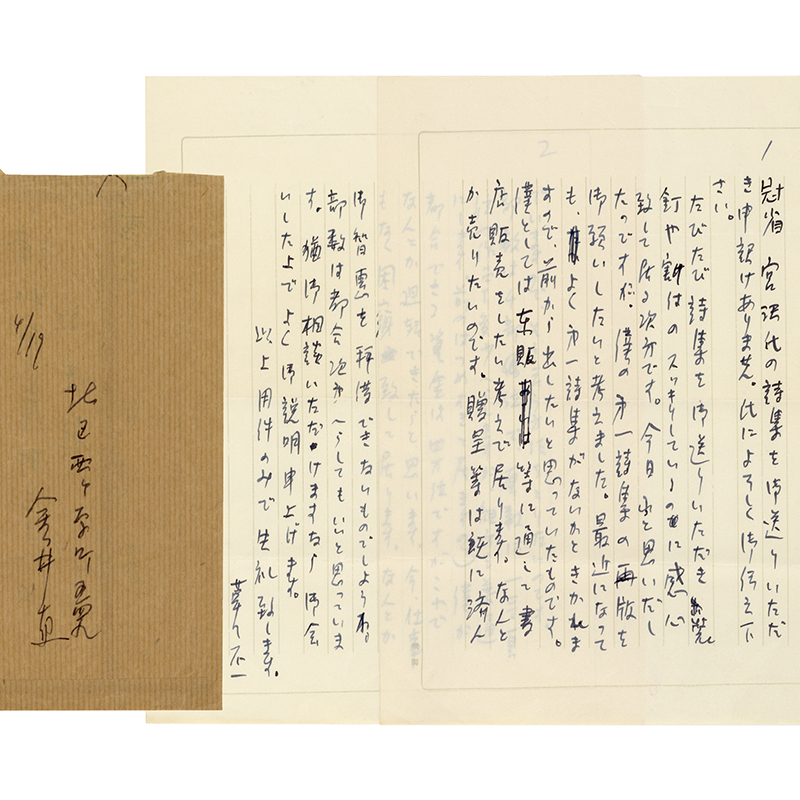 冠省 宮沢氏の詩集を御送りいただ
き申訳けありません。氏によろしく御伝え下
さい。
たびたび詩集を御送りいただき
釘や割付のスッキリしているのに感心
致して居る次第です。今日 ふと思いだし
たのですが、僕の第一詩集の再版を
御願いしたいと考えました。最近になって
も、よく第一詩集がないかときかれま
すので、前から出したいと思っていたものです。
僕としては東販 等に通して書
店販売をしたい考えで居ります。なんと
か売りたいのです。贈呈等は既に済ん
2
御智恵を拝借できないものでしようね。
部数は都合次第 へらしてもいいと思っていま
す。猶御相談いただけますなら御会
いした上でよく御説明申上げます。
以上用件のみで失礼致します。
草々不一
4/19
北区西ヶ原町
金井直